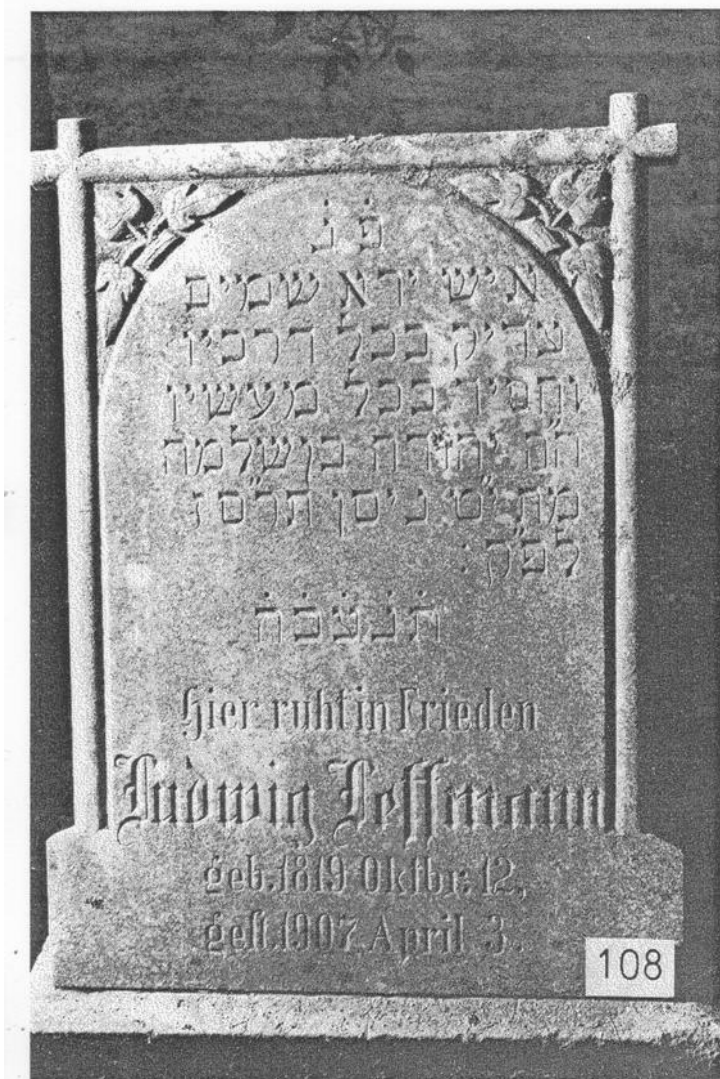 פ̇ נ̇
איש ירא שמים
צדיק בכל דרכיו
וחסיד בכל מעשיו
ה"ה יהודה בן שלמה
מת י"ט ניסן תרס"ז
לפ"ק :
ת̇ נ̇ צ̇ ב̇ ה̇
Hier ruht in Frieden
Ludwig Leffmann
geb. 1819 Oktbr. 12,
gest. 1907 April 3.
108